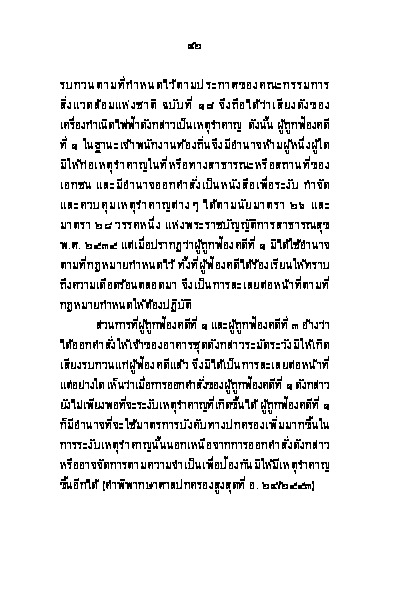 ๔๒
รบกวนตามที่กำหนดไว้ตามประกาศของคณะกรรมการ
สิ่งแวดล้อมแห่งชาติ ฉบับที่ ๑๗ จึงถือได้ว่าเสียงดังของ
เครื่องกำเนิดไฟฟ้าดังกล่าวเป็นเหตุรำคาญ ดังนั้น ผู้ถูกฟ้องคดี
ที่ ๑ ในฐานะเจ้าพนักงานท้องถิ่นจึงมีอำนาจห้ามผู้หนึ่งผู้ใด
มิให้ก่อเหตุรำคาญในที่หรือทางสาธารณะหรือสถานที่ของ
เอกชน และมีอำนาจออกคำสั่งเป็นหนังสือเพื่อระงับ กำจัด
และควบคุมเหตุรำคาญต่างๆ ได้ตามนัยมาตรา ๒๖ และ
มาตรา ๒๘ วรรคหนึ่ง แห่งพระราชบัญญัติการสาธารณสุข
พ.ศ. ๒๕๓๕ แต่เมื่อปรากฏว่าผู้ถูกฟ้องคดีที่ ๑ มิได้ใช้อำนาจ
ตามที่กฎหมายกำหนดไว้ ทั้งที่ผู้ฟ้องคดีได้ร้องเรียนให้ทราบ
ถึงความเดือดร้อนตลอดมา จึงเป็นการละเลยต่อหน้าที่ตามที่
กฎหมายกำหนดให้ต้องปฏิบัติ
ส่วนการที่ผู้ถูกฟ้องคดีที่ ๑ และผู้ถูกฟ้องคดีที่ ๓ อ้างว่า
ได้ออกคำสั่งให้เจ้าของอาคารชุดดังกล่าวระมัดระวังมิให้เกิด
เสียงรบกวนแก่ผู้ฟ้องคดีแล้ว จึงมิได้เป็นการละเลยต่อหน้าที่
แต่อย่างใด เห็นว่าเมื่อการออกคำสั่งของผู้ถูกฟ้องคดีที่ ๑ ดังกล่าว
ยังไม่เพียงพอที่จะระงับเหตุรำคาญที่เกิดขึ้นได้ ผู้ถูกฟ้องคดีที่ ๑
ก็มีอำนาจที่จะใช้มาตรการบังคับทางปกครองเพิ่มมากขึ้นใน
การระงับเหตุรำคาญนั้นนอกเหนือจากการออกคำสั่งดังกล่าว
หรืออาจจัดการตามความจำเป็นเพื่อป้องกันมิให้มีเหตุรำคาญ
ขึ้นอีกได้ (คำพิพากษาศาลปกครองสูงสุดที่ อ. ๒๔/๒๕๕๓)